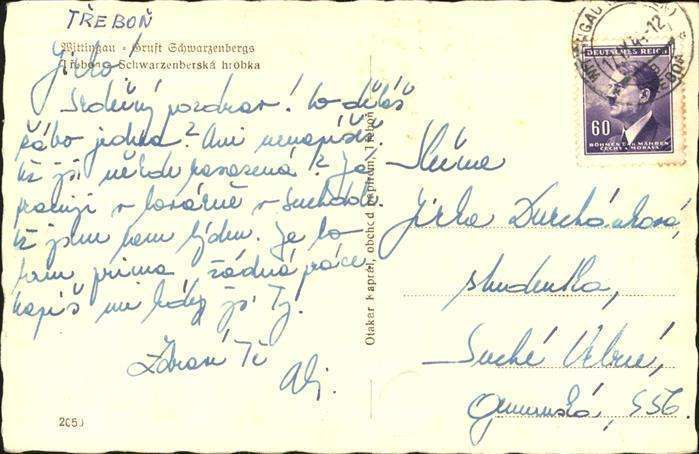 TŘEBOŇ
Wittingau - Gruft Schwarzenbergs
Třeboň - Schwarzenberská hrobka
Jirko!
Srdečný pozdrav! Co děláš
žábo jedna? Ani nenapíšeš.
Už jsi někde nasazená? Já
pracuji v továrně v Suchdole.
Už jsem tam týden. Je to
tam prima žádná práce.
Napiš mi kdy jsi Ty.
Zdraví Tě
2050
Otakar Kaprál, obchod papírem, Třeboň
DEUTSCHES REICH
60
BÖHMEN UND MÄHREN
ČECHY A MORAVA
Slečna
Jirka
studentka,
Suché Vrbné,
556.